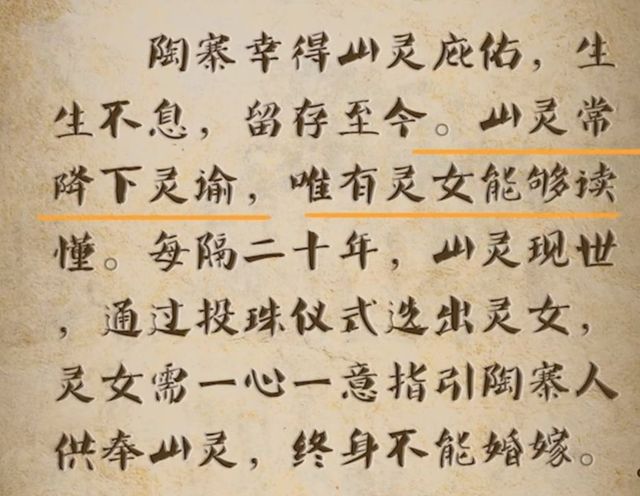 陶寨幸得山灵庇佑，生
生不息，留存至今。山灵常
降下灵瑜，唯有灵女能够读
懂。每隔二十年，山灵现世
，通过投珠仪式选出灵女，
灵女需一心一意指引陶寨人
供奉山灵，终身不能婚嫁。